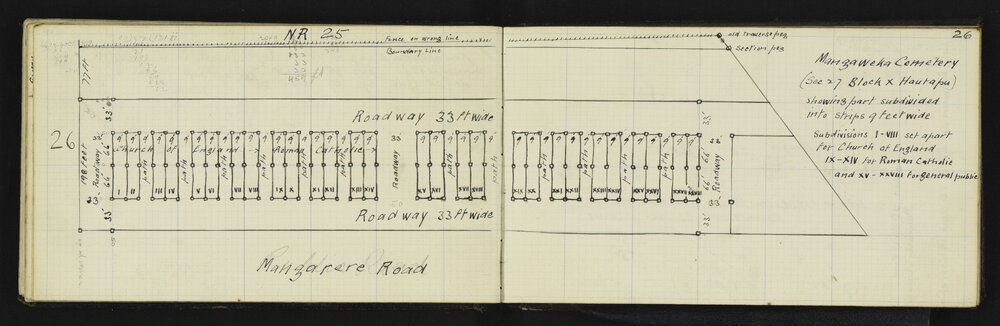 NR 25
26
Fence on wrong line
Boundary Line
old traverse peg
section peg
77ft
Mangaweka Cemetery
(Sec 27 Block X Hautapu)
showing part subdivided
into strips 9 feet wide
Subdivisions I-VIII set apart
for Church of England
IX-XIV for Roman Catholic
and XV-XXVIII for general public
33'
Roadway 33 ft wide
33'
26
9 9 9 9 9 9 9 9 9 9 9 9 9 9
Church of England
Roman Catholic
198 feet
Roadway
66'
66'
path path path path path path
Roadway
path path
path path path path path path
66'
66'
Roadway
I II III IV V VI VII VIII IX X XI XII XIII XIV
XV XVI XVII XVIII
XIX XX
XXVII XXVIII
33'
Roadway 33 ft wide
33'
Mangarere Road